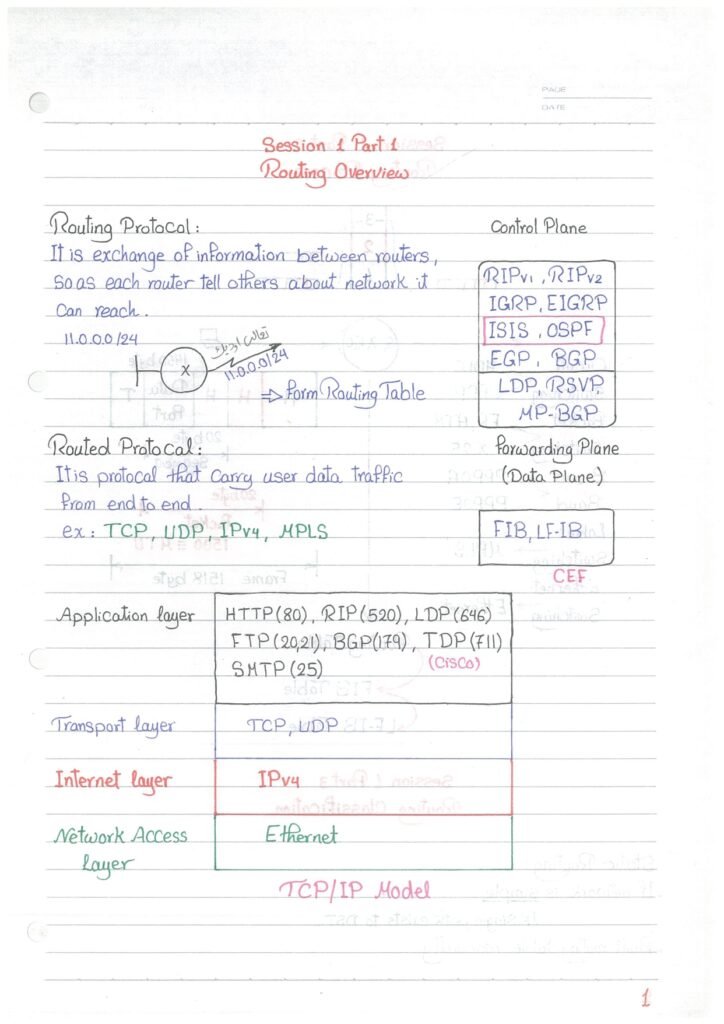 PAGE
DATE
Session 1 Part 1
Routing Overview
Routing Protocol:
It is exchange of information between routers,
so as each router tell others about network it
Can reach.
11.0.0.0/24
X
11.0.0.0/24
⇒ Form Routing Table
Control Plane
RIPv1, RIPv2
IGRP, EIGRP
ISIS, OSPF
EGP, BGP
LDP, RSVP,
MP-BGP
Routed Protocal:
It is protocal that carry user data traffic
from end to end.
ex: TCP, UDP, IPv4, MPLS
Forwarding Plane
(Data Plane)
FIB, LF-IB
CEF
Application layer
HTTP(80), RIP(520), LDP(646)
FTP(20,21), BGP(179), TDP(711)
SMTP(25)
(Cisco)
Transport layer
TCP, UDP
Internet layer
IPv4
Network Access
layer
Ethernet
TCP/IP Model
1